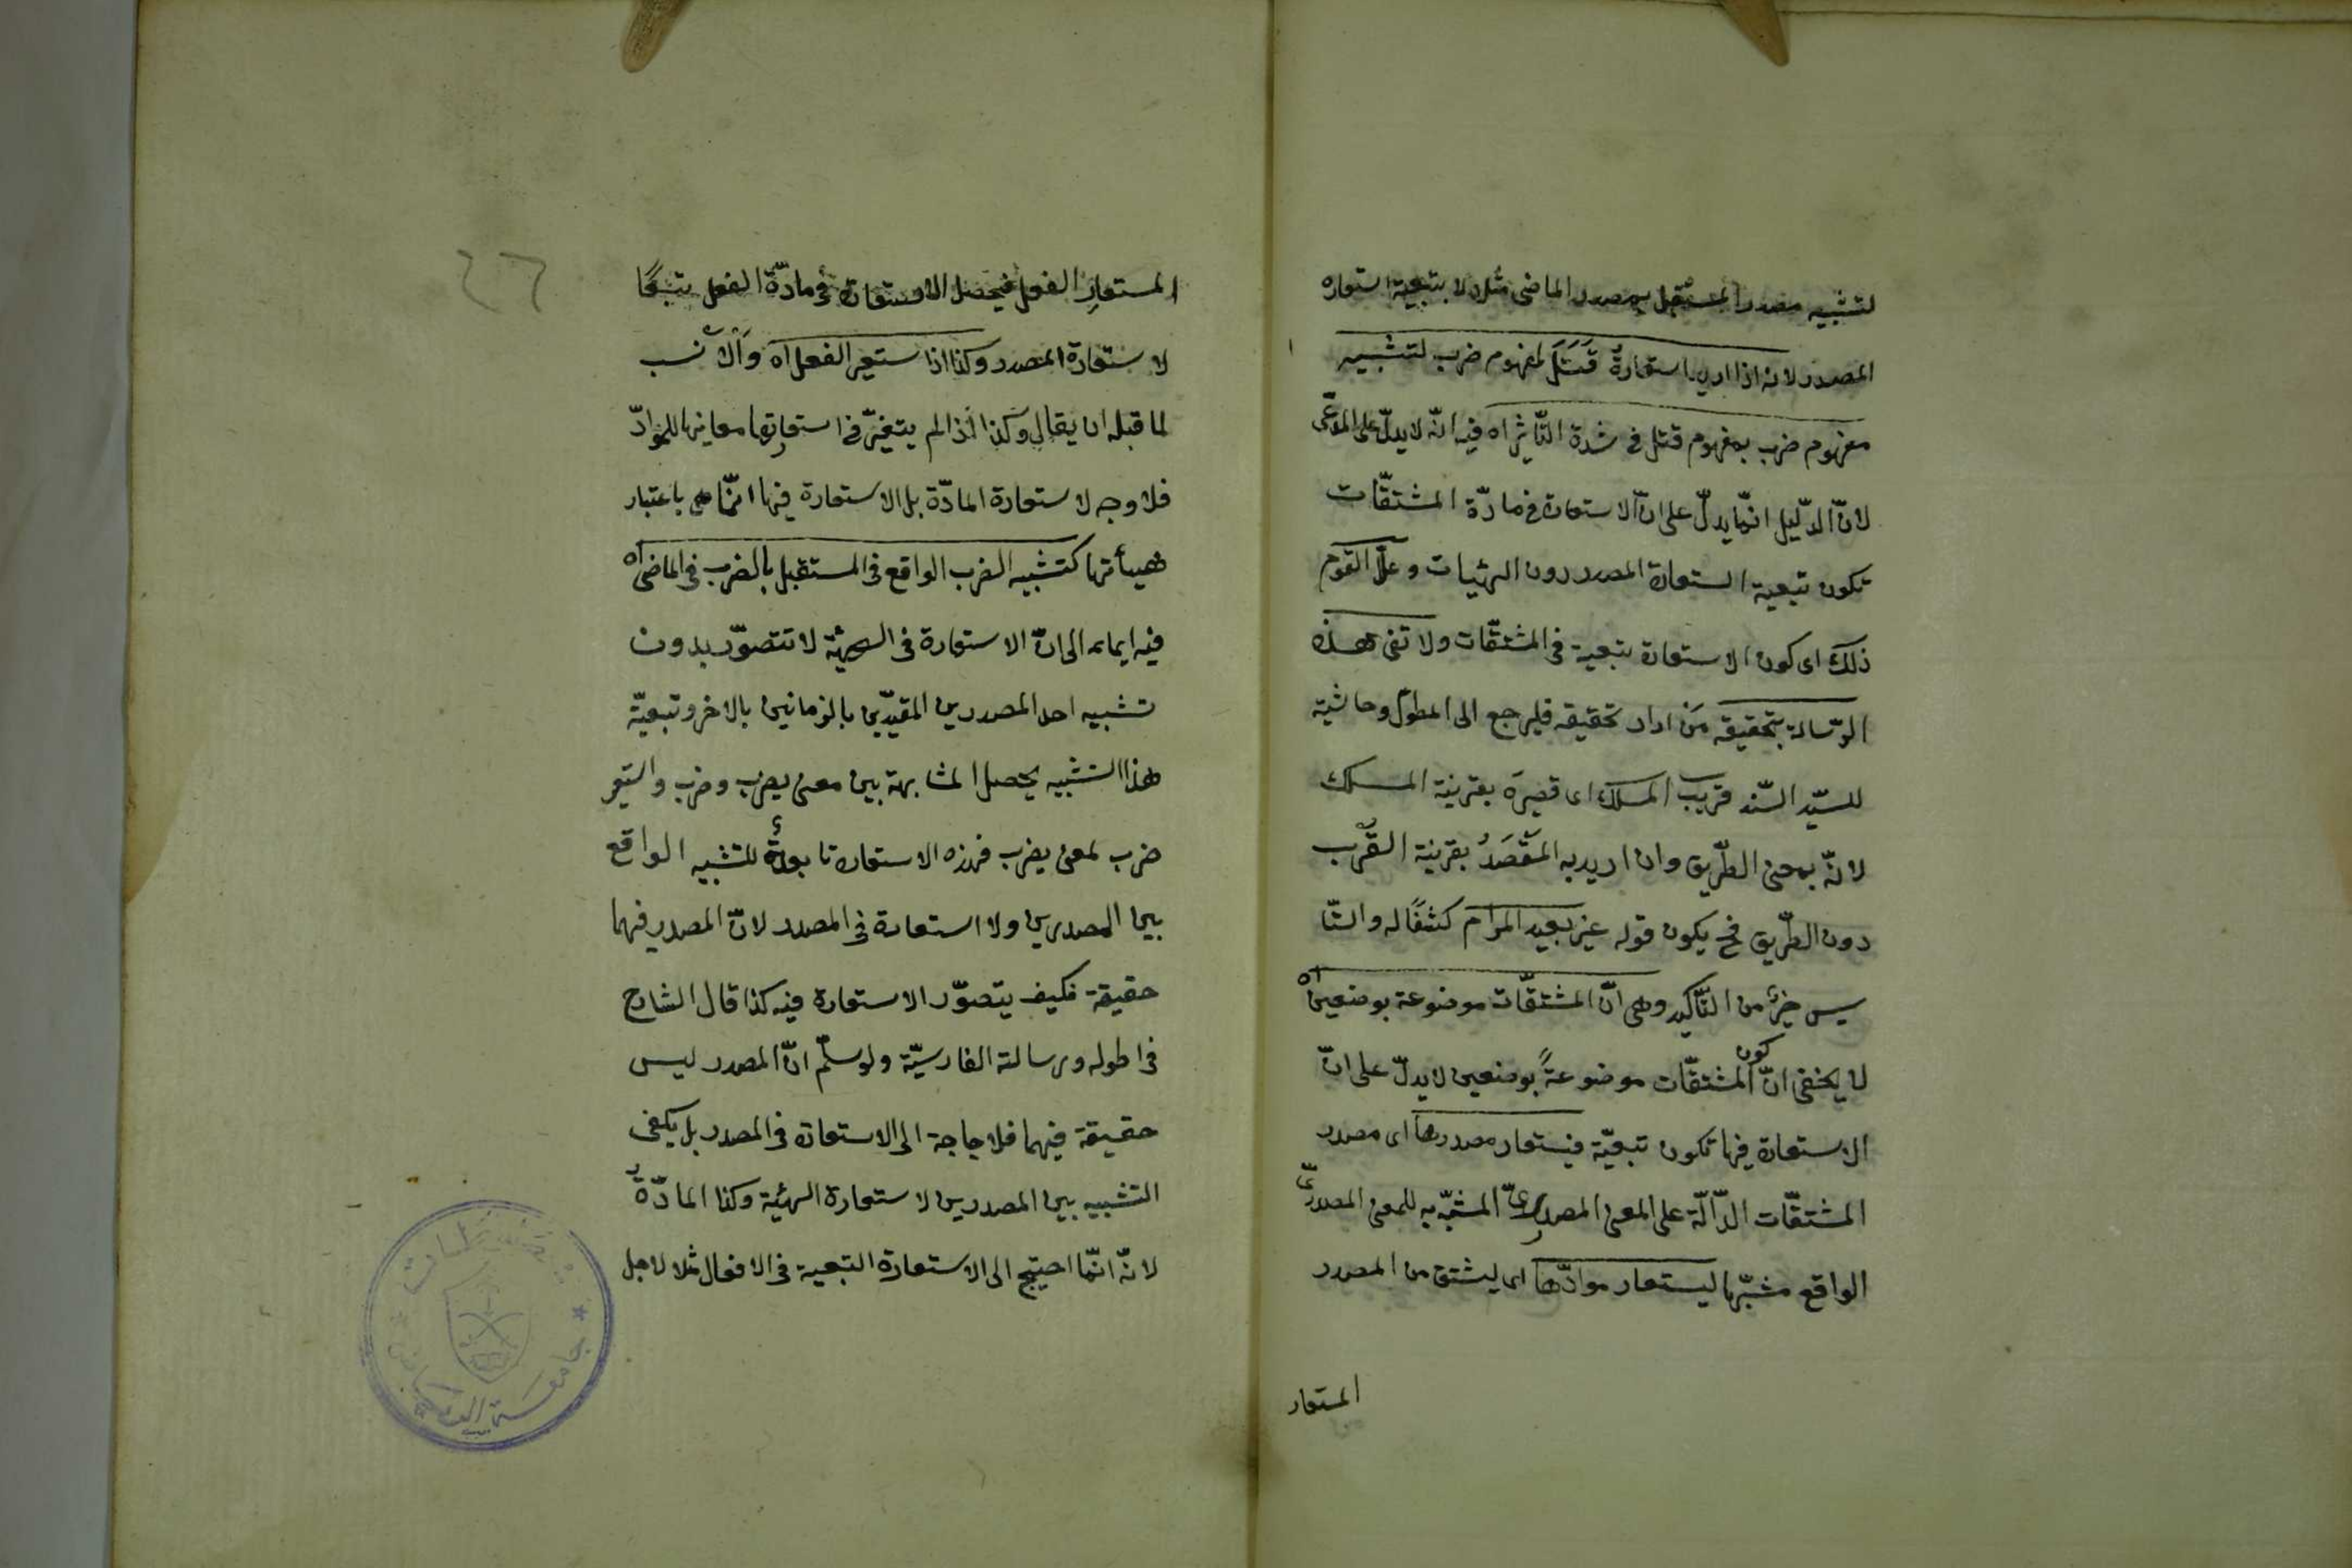 لتشبيه مصدر المستقبل بمصدر الماضى مثلا لا بتبعية استعاره
المصدر لانه اذا اريد استعارة قَتَلَ لمفهوم ضرب لتشبيه
مفهوم ضرب بمفهوم قتل فى شدة التّأثير اه فيه انّه لا يدلّ على المدّعى
لانّ الدّليل انّما يدلّ على انّ الاستعارة فى مادّة المشتقّات
تكون تبعية لاستعارة المصدر دون الهيئات وعلّل القوم
ذلك اى كون الاستعارة تبعية فى المشتقّات ولا تفى هذه
الرّسالة بتحقيقه مَن اراد تحقيقه فليرجع الى المطول وحاشية
للسيّد السّند قريب المسلك اى قصيرَه بقرينة المسلك
لانّه بمعنى الطّريق وان اريد به المَقْصَدُ بقرينة القُرب
دون الطّريق فح يكون قوله غير بعيد المرام كشفًا له والتّا
سيس خيرٌ من التّأكيد وهى انّ المشتقّات موضوعة بوضعين اه
لا يخفى انّ كون المشتقّات موضوعةً بوضعين لا يدلّ على انّ
الاستعارة فيها تكون تبعيّة فيستعار مصدرها اى مصدر
المشتقّات الدّالّة على المعنى المصدرىّ المشبّه به للمعنى المصدرىّ
الواقع مشبّها ليستعار موادّها اى ليشتق من المصدر
المستعار
٢٦
المستعارِ الفعل فيحصل الاستعارة فى مادّة الفعل تبعًا
لاستعارة المصدر وكذا اذا استعير الفعل اه والانسب
لما قبله ان يقال وكذا اذا لم يتغيّر فى استعارتها معانيها للموادّ
فلا وجه لاستعارة المادّة بل الاستعارة فيها انّما هى باعتبار
هيأتها كتشبيه الضرب الواقع فى المستقبل بالضرب فى الماضى اه
فيه ايماء الى انّ الاستعارة فى الهيئة لا تتصوّر بدون
تشبيه احد المصدرين المقيّدين بالزمانين بالاخر وتبعيّة
هذا التشبيه يحصل المشابهة بين معنى يضرب وضرب واستعير
ضرب لمعنى يضرب فهذه الاستعارة تابعة للتشبيه الواقع
بين المصدرين ولا استعارة فى المصدر لانّ المصدر فيهما
حقيقة فكيف يتصوّر الاستعارة فيه كذا قال الشارح
فى اطوله ورسالته الفارسيّة ولو سلّم انّ المصدر ليس
حقيقة فيهما فلا حاجة الى الاستعارة فى المصدر بل يكفى
التشبيه بين المصدرين لاستعارة الهيئة وكذا المادّةُ
لانّه انّما احتيج الى الاستعارة التبعية فى الافعال مثلا لاجل
جامعة الرياض